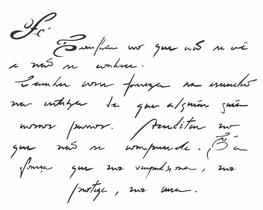 Fé
Acreditar no que não se vê
e não se conhece.
Caminhar com firmeza na escuridão
na certeza de que alguém guia
nossos passos. Acreditar no
que não se compreende. É a
força que nos impulsiona, nos
protege, nos una.